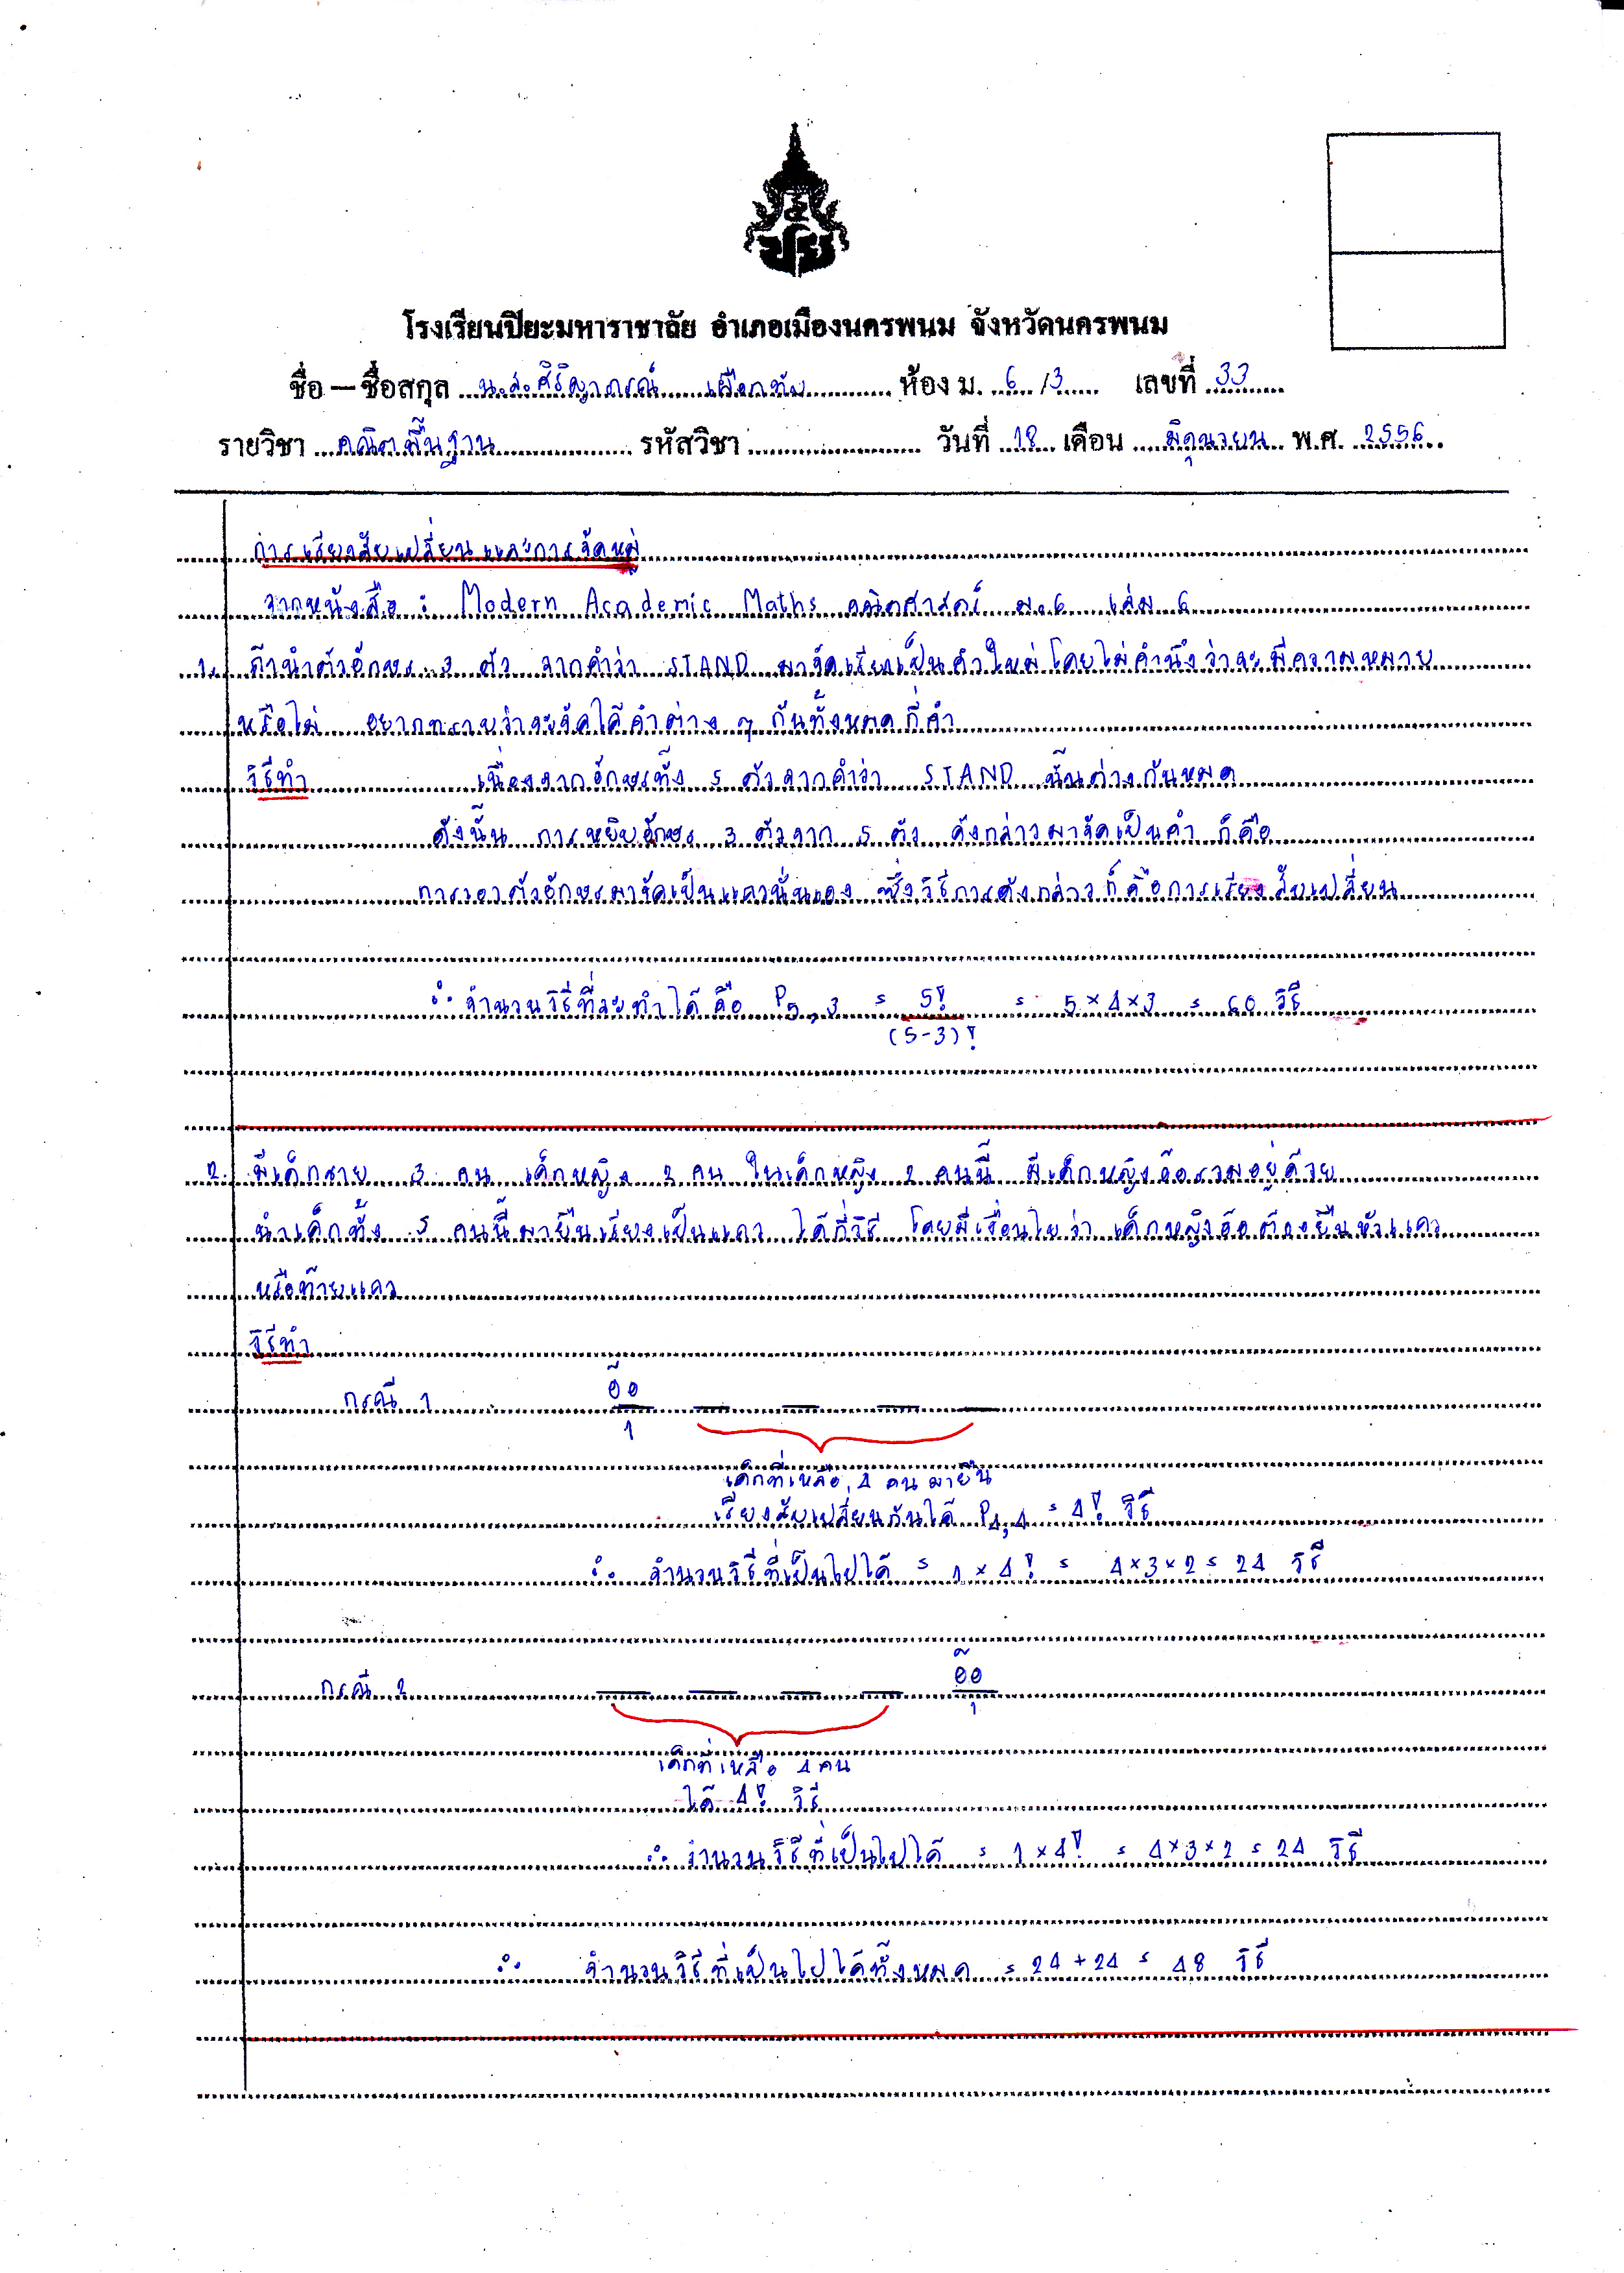 ปร
โรงเรียนปิยะมหาราชาลัย อำเภอเมืองนครพนม จังหวัดนครพนม
ชื่อ – ชื่อสกุล น.ส.ศิริญาภรณ์ เผือกทับ ห้อง ม. 6 /3 เลขที่ 33
รายวิชา คณิตพื้นฐาน รหัสวิชา วันที่ 18 เดือน มิถุนายน พ.ศ. 2556
การเรียงสับเปลี่ยนและการจัดหมู่
จากหนังสือ : Modern Academic Maths คณิตศาสตร์ ม.6 เล่ม 6
1. ถ้านำตัวอักษร 3 ตัว จากคำว่า STAND มาจัดเรียงเป็นคำใหม่ โดยไม่คำนึงว่าจะมีความหมาย
หรือไม่ อยากทราบว่าจะจัดได้คำต่าง ๆ กันทั้งหมดกี่คำ
วิธีทำ เนื่องจากอักษรทั้ง 5 ตัวจากคำว่า STAND นั้นต่างกันหมด
ดังนั้น การหยิบอักษร 3 ตัวจาก 5 ตัว ดังกล่าวมาจัดเป็นคำ ก็คือ
การเอาตัวอักษรมาจัดเป็นแถวนั่นเอง ซึ่งวิธีการดังกล่าวก็คือการเรียงสับเปลี่ยน
∴ จำนวนวิธีที่จะทำได้ คือ P5,3 = 5! = 5×4×3 = 60 วิธี
(5-3)!
2. มีเด็กชาย 3 คน เด็กหญิง 2 คน ในเด็กหญิง 2 คนนี้ มีเด็กหญิงอ้อรวมอยู่ด้วย
นำเด็กทั้ง 5 คนนี้มายืนเรียงเป็นแถว ได้กี่วิธี โดยมีเงื่อนไขว่า เด็กหญิงอ้อต้องยืนหัวแถว
หรือท้ายแถว
วิธีทำ
กรณี 1 อ้อ
1
เด็กที่เหลือ 4 คน มายืน
เรียงสับเปลี่ยนกันได้ P4,4 = 4! วิธี
∴ จำนวนวิธีที่เป็นไปได้ = 1 × 4! = 4×3×2 = 24 วิธี
กรณี 2 อ้อ
1
เด็กที่เหลือ 4 คน
ได้ 4! วิธี
∴ จำนวนวิธีที่เป็นไปได้ = 1×4! = 4×3×2 = 24 วิธี
∴ จำนวนวิธีที่เป็นไปได้ทั้งหมด = 24+24 = 48 วิธี